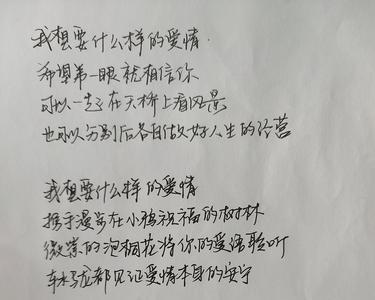 我想要什么样的爱情
希望第一眼就相信你
可以一起在天桥上看风景
也可以分别后各自做好人生的经营
我想要什么样的爱情
携手漫步在小鸟祝福的树林
微紫的泡桐花将你的爱语聆听
车水马龙都见证爱情本身的安宁